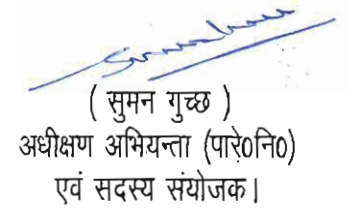 ( सुमन गुच्छ )
अधीक्षण अभियन्ता (पारे०नि०)
एवं सदस्य संयोजक।